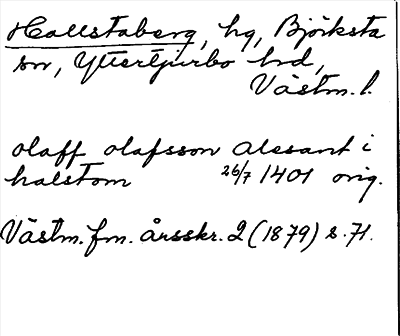 Hallstaberg, hg, Björksta
sn, Yttertjurbo hd,
Västm. l.
olaff olafsson alesant i
halstom 26/7 1401 orig.
Västm. fm. årsskr. 2 (1879) s. 71.